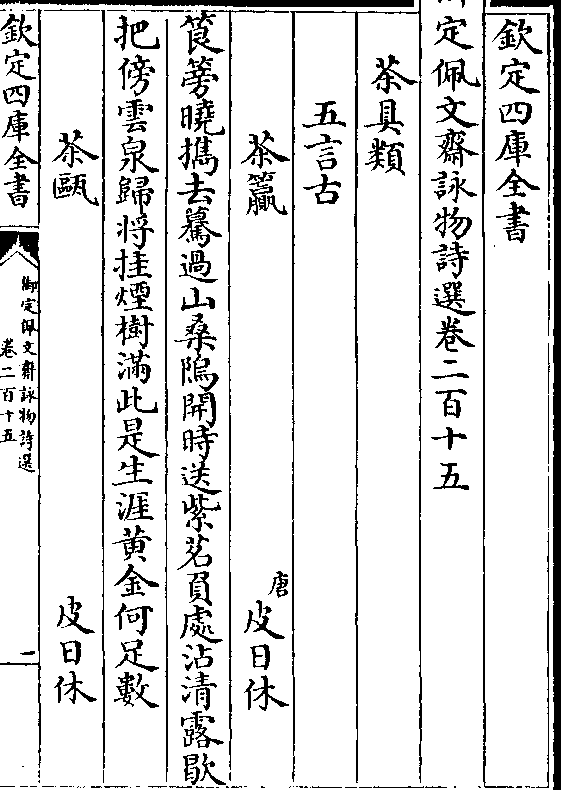 欽定四庫全書
定佩文齋詠物詩選卷二百十五
茶具類
五言古
茶籯 唐 皮日休
筤篣曉攜去驀過山桑隖開時送紫茗負處沾清露歇
把傍雲泉歸將挂煙樹滿此是生涯黃金何足數
茶甌 皮日休
欽定四庫全書
御定佩文齋詠物詩選
卷二百十五
一